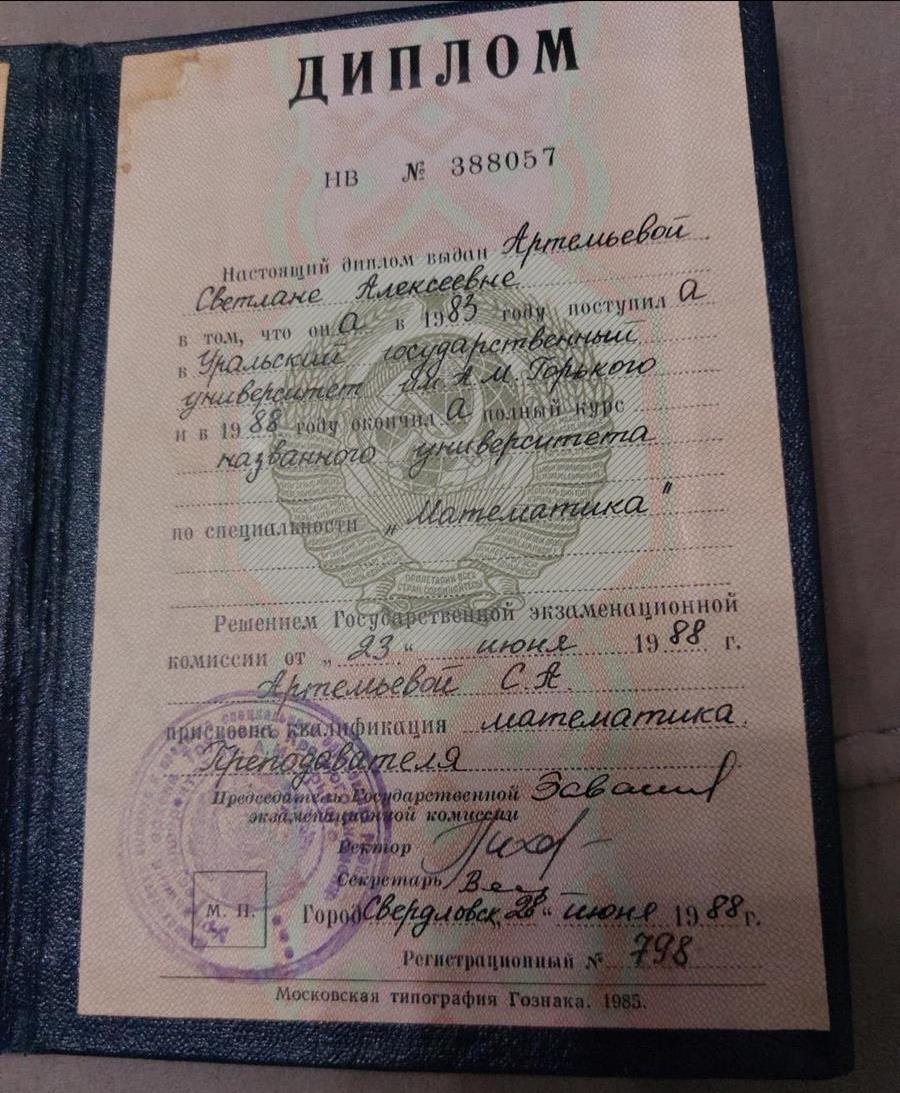 ДИПЛОМ
НВ № 388057
Настоящий диплом выдан Артемьевой
Светлане Алексеевне
в том, что она в 1983 году поступила
в Уральский государственный
университет им. А.М. Горького
и в 1988 году окончила полный курс
названного университета
по специальности „Математика"
ПРОЛЕТАРИИ ВСЕХ
СТРАН, СОЕДИНЯЙТЕСЬ!
Решением Государственной экзаменационной
комиссии от „23" июня 1988 г.
Артемьевой С.А.
присвоена квалификация математика.
Преподавателя
Председатель Государственной
экзаменационной комиссии
Ректор
Секретарь
М. П.
Город Свердловск, 28 " июня 1988 г.
Регистрационный № 798
Московская типография Гознака. 1985.